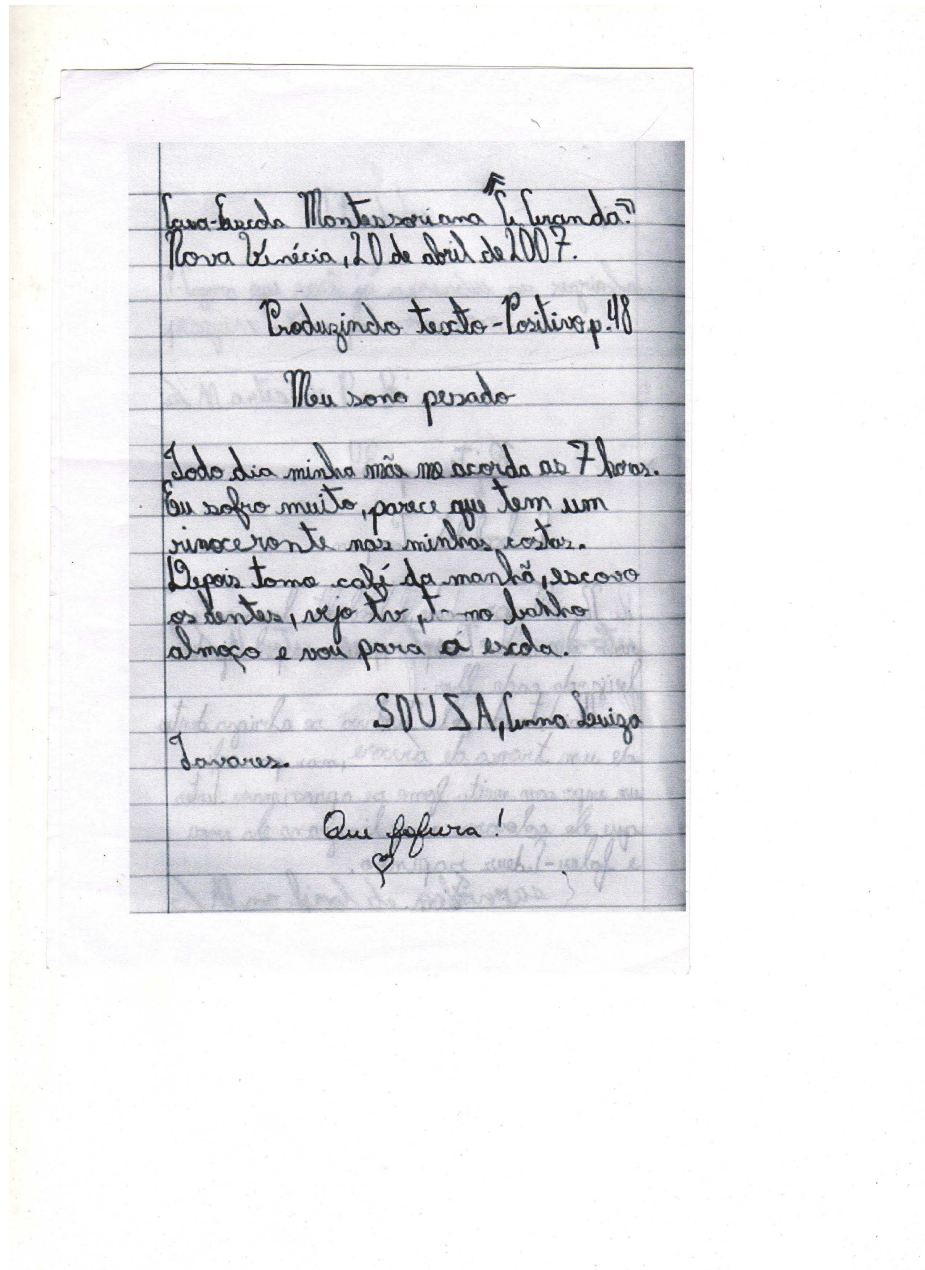 Casa-Escola Montessoriana "Ciranda".
Nova Venécia, 20 de abril de 2007.
Produzindo texto - Positivo p. 48
Meu sono pesado
Todo dia minha mãe me acorda as 7 horas.
Eu sofro muito, parece que tem um
rinoceronte nas minhas costas.
Depois tomo café da manhã, escovo
os dentes, vejo tv, t- mo banho
almoço e vou para a escola.
SOUSA, Anna Luiza
Tavares.
Que fofura!